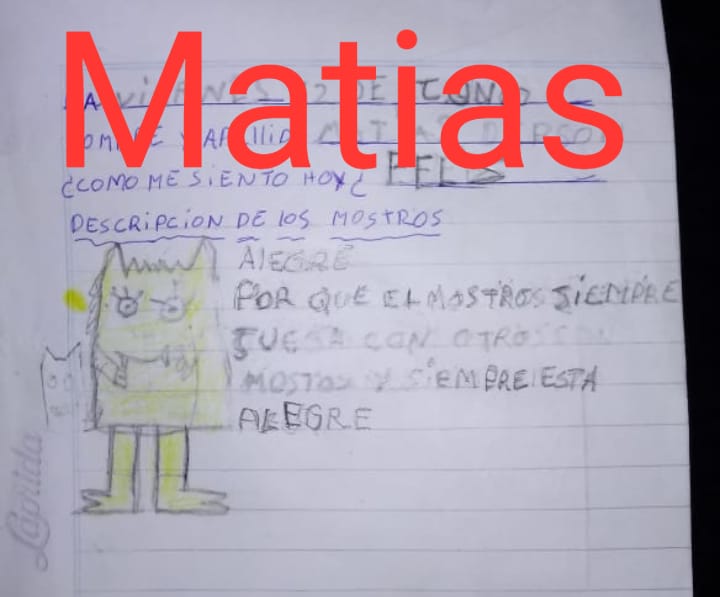 Matias
VIERNES 12 DE JUNIO
NOMBRE Y APELLIDO MATIAS
¿COMO ME SIENTO HOY¿ FELIZ
DESCRIPCION DE LOS MOSTROS
AlEGRE
POR QUE EL MOSTROS SIEMPRE
JUEGA CON OTROS
MOSTOS Y SIEMPRE ESTA
ALEGRE
Laprida